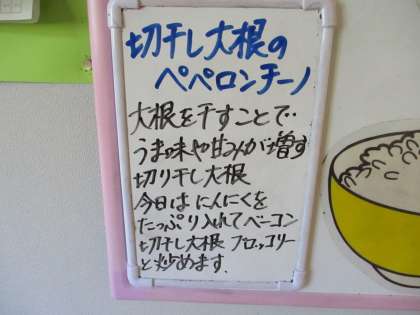 切干し大根の
ペペロンチーノ
大根を干すことで‥
うま味や甘みが増す
切り干し大根
今日はにんにくを
たっぷり入れてベーコン
切干し大根 ブロッコリー
と炒めます.